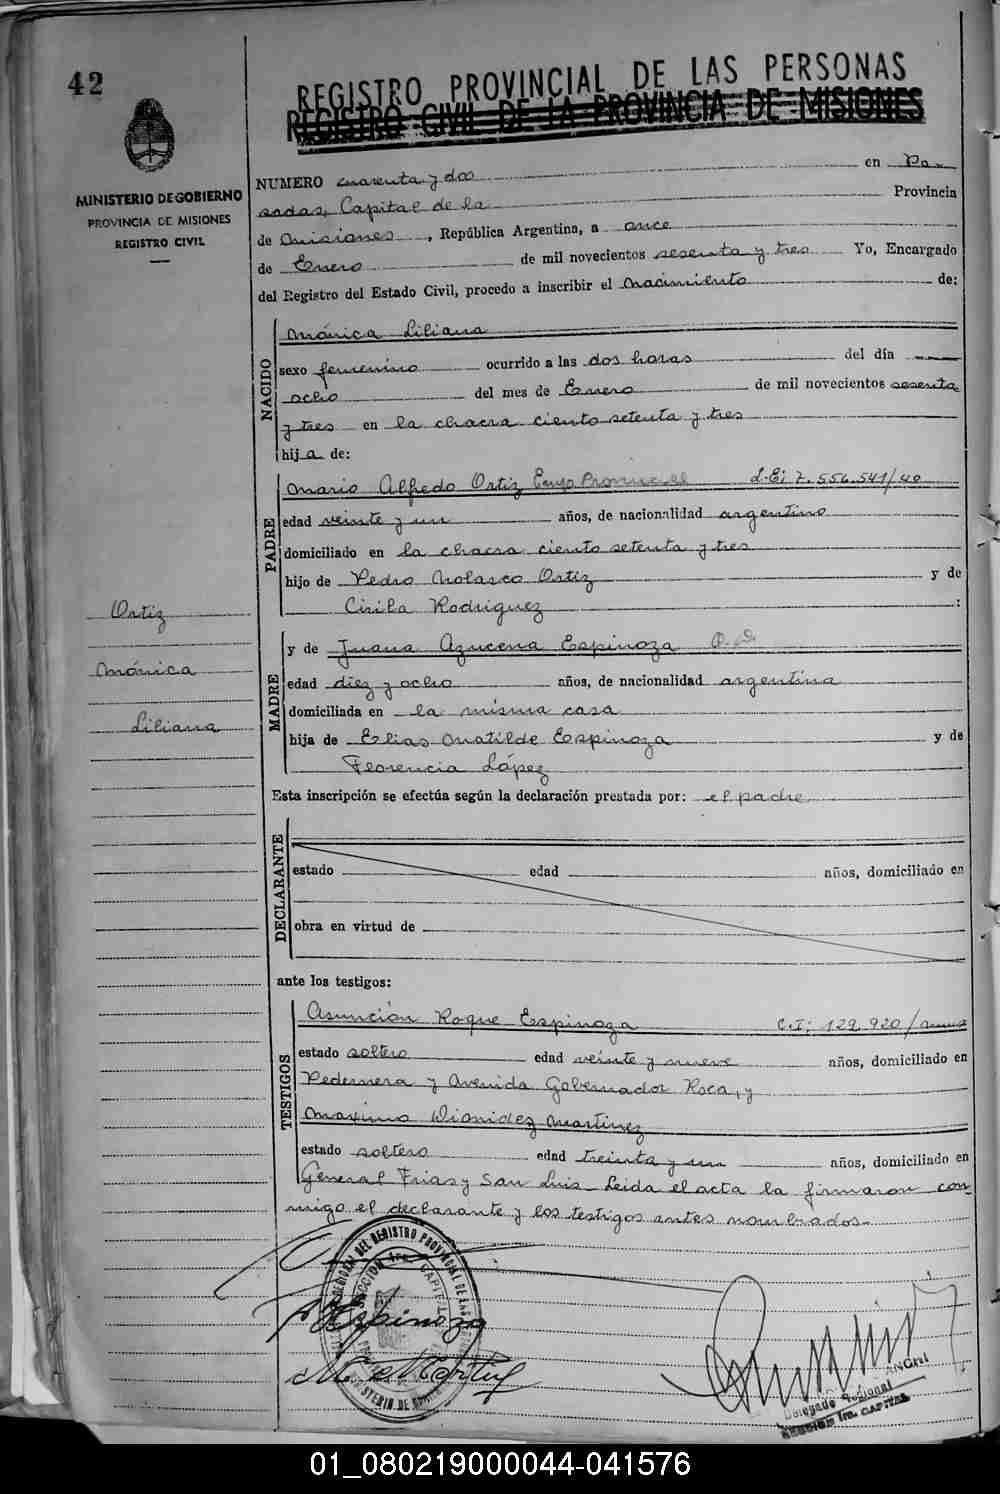 42
REGISTRO PROVINCIAL DE LAS PERSONAS
REGISTRO CIVIL DE LA PROVINCIA DE MISIONES
MINISTERIO DE GOBIERNO
PROVINCIA DE MISIONES
REGISTRO CIVIL
NUMERO cuarenta y dos en Po-
sadas, Capital de la Provincia
de Misiones, República Argentina, a once
de Enero de mil novecientos sesenta y tres Yo, Encargado
del Registro del Estado Civil, procedo a inscribir el nacimiento de:
NACIDO
Mónica Liliana
sexo femenino ocurrido a las dos horas del día
ocho del mes de Enero de mil novecientos sesenta
y tres en la chacra ciento setenta y tres
hija de:
PADRE
Mario Alfredo Ortiz L.E: 7.556.541/40
edad veinte y un años, de nacionalidad argentino
domiciliado en la chacra ciento setenta y tres
hijo de Pedro Nolasco Ortiz y de
Cirila Rodriguez :
MADRE
y de Juana Azucena Espinoza
edad diez y ocho años, de nacionalidad argentina
domiciliada en la misma casa
hija de Elias Matilde Espinoza y de
Florencia López
Esta inscripción se efectúa según la declaración prestada por: el padre
DECLARANTE
estado edad años, domiciliado en
obra en virtud de
ante los testigos:
TESTIGOS
Asunción Roque Espinoza C.I: 129.920/
estado soltero edad veinte y nueve años, domiciliado en
Pedernera y Avenida Gobernador Roca, y
Maximo Dionidez Martinez
estado soltero edad treinta y un años, domiciliado en
General Frias y San Luis_ Leida el acta la firmaron con-
migo el declarante y los testigos antes nombrados-
Ortiz
Mónica
Liliana
A R Espinoza
Delegado Regional
SECCION 1ra. CAPITAL
01_080219000044-041576